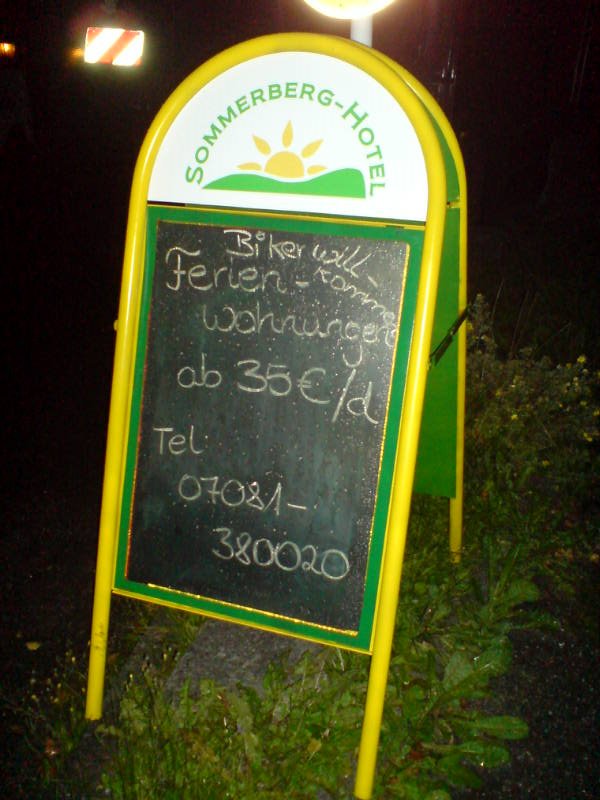 SOMMERBERG-HOTEL
Biker will-
komm
Ferien-
wohnungen
ab 35€/d
Tel:
07081-
380020